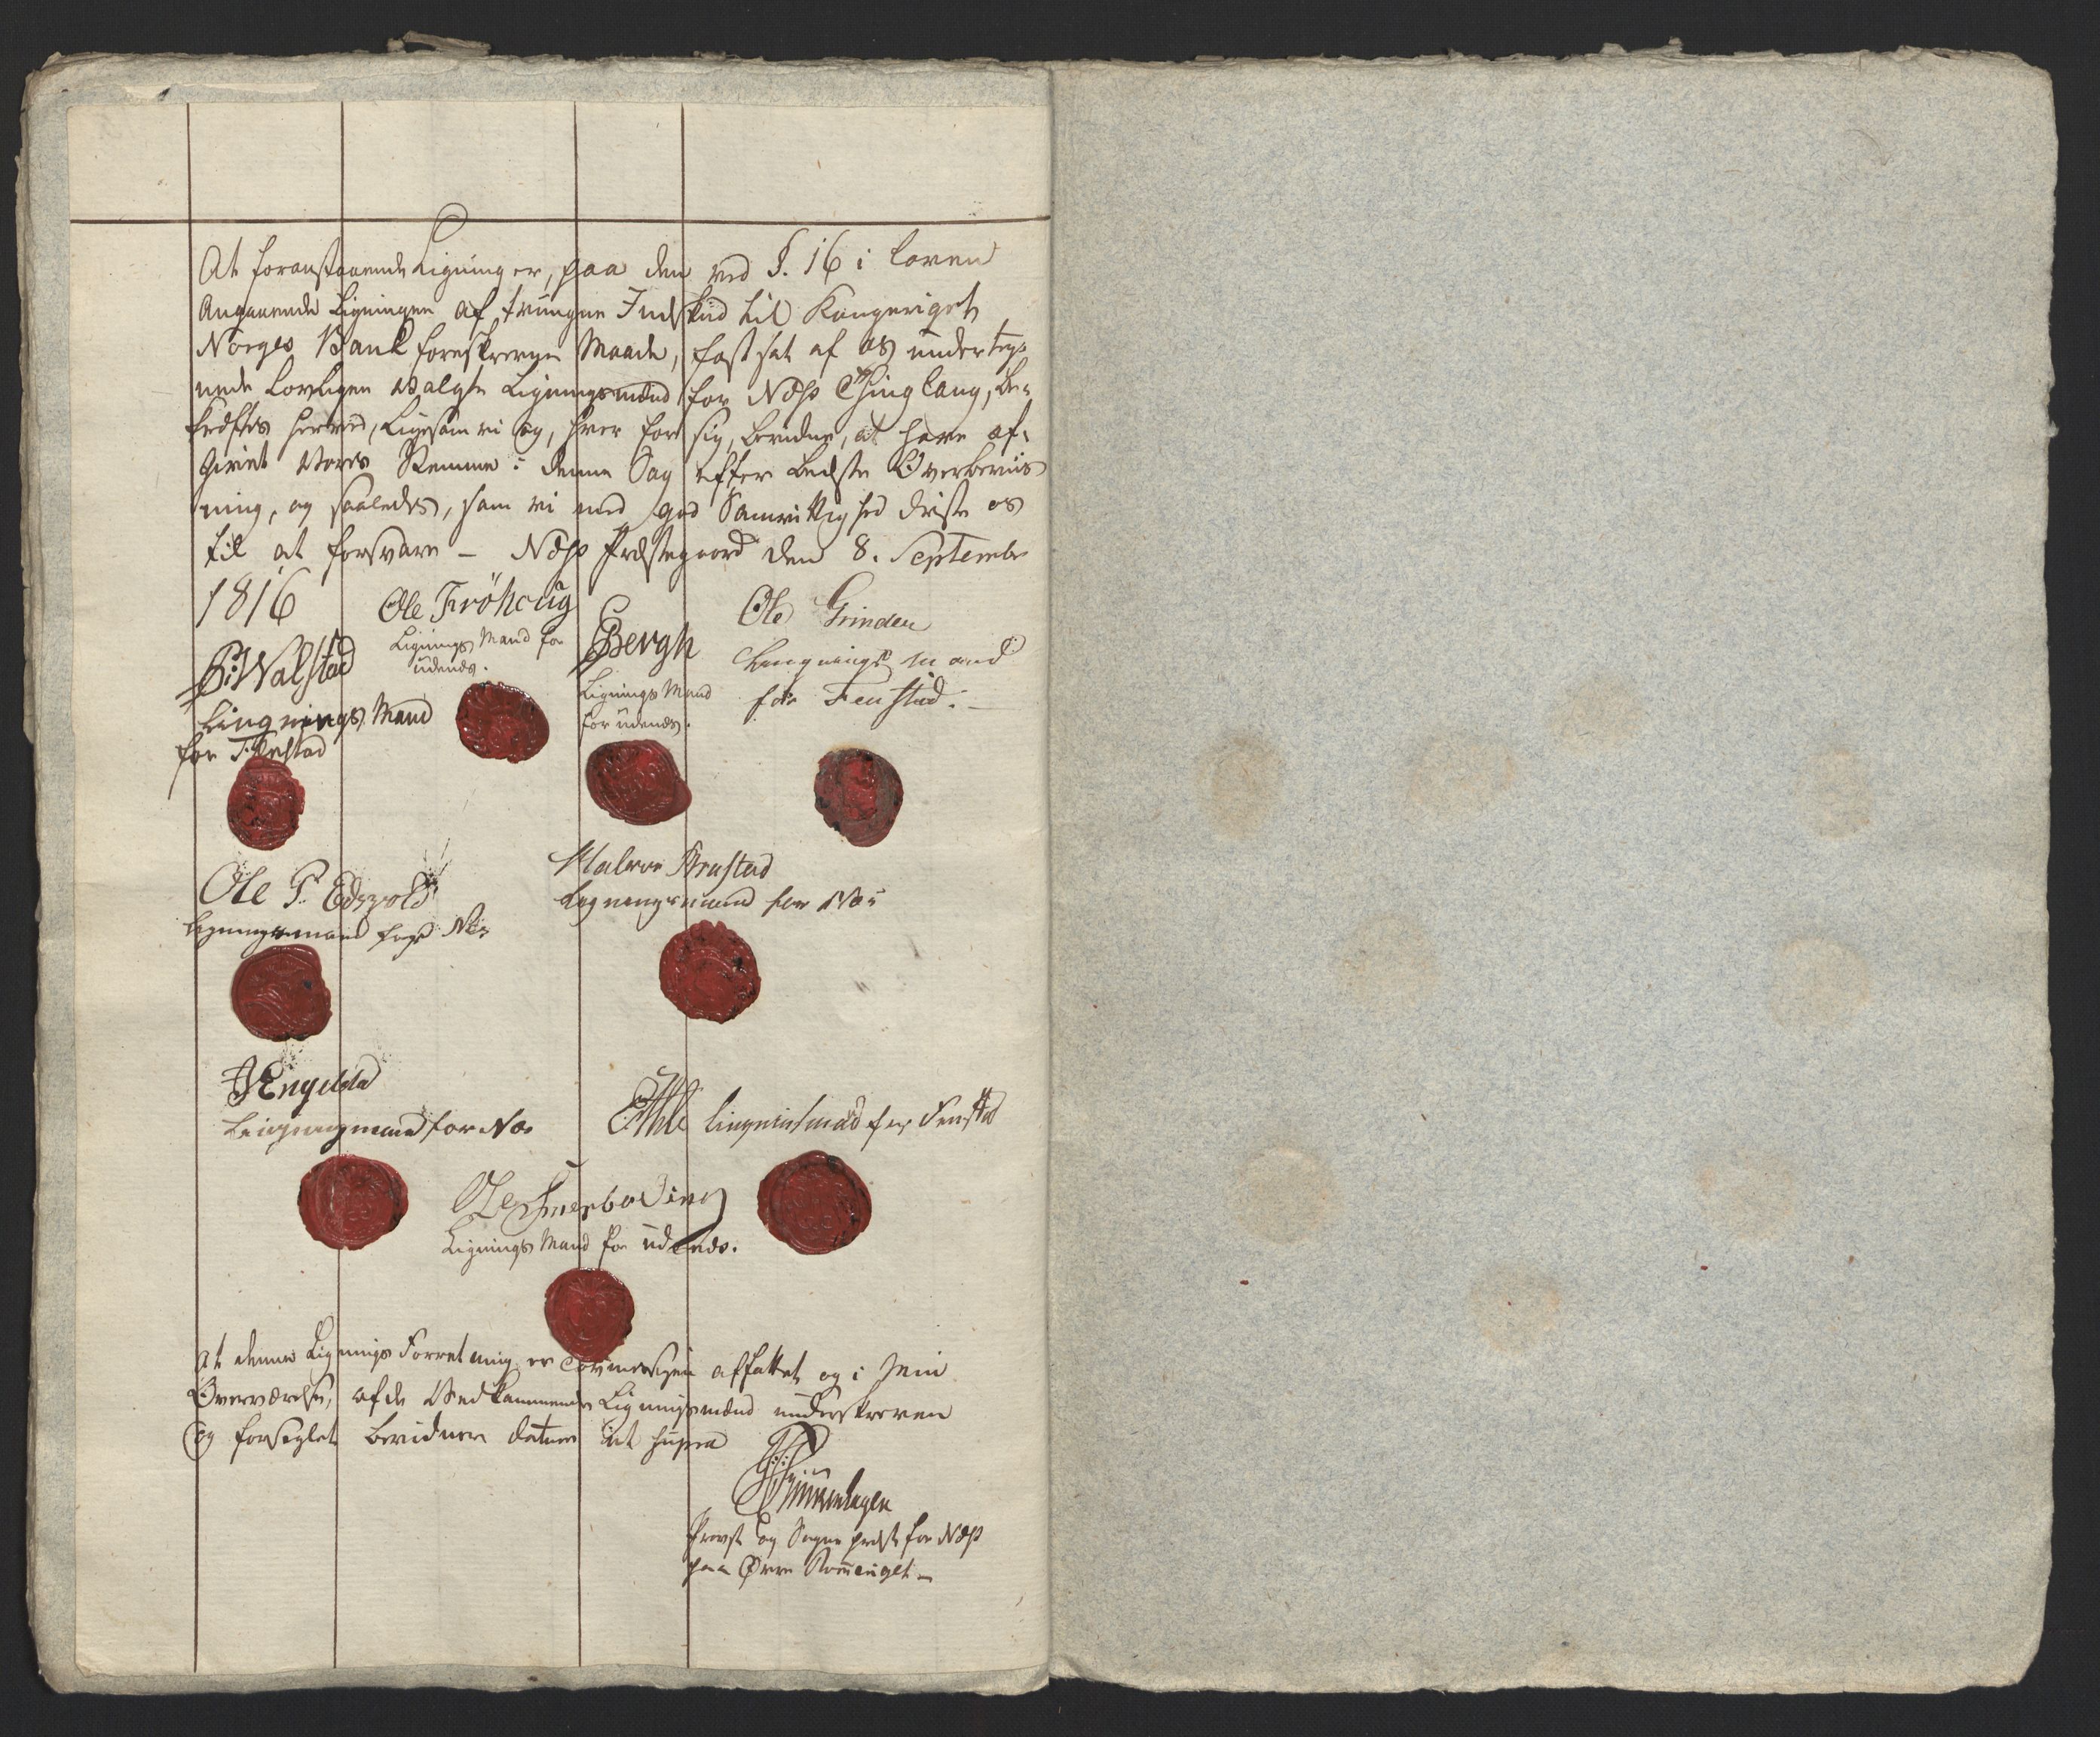 At foranstaaende Ligning er, paa den ved §. 16 i Loven
Angaaende Ligningen af tvungne Indskud til Kongeriget
Norges Bank foreskrevne Maade, fastsat af os underteg-
nede Lovligen Valgte Ligningsmænd for Næss Thinglaug, be-
kræftes herved, Ligesom vi og, hver for sig, bevidne, at have af-
givet Vores Stemme i denne Sag efter bedste Overbeviis
ning, og saaledes, som vi med god Samvittighed driste os
til at forsvare – Næss Præstegaard den 8. Septembr
1816
Ole Fröhoug
Lignings Mand for
udenæs.
Bergh
Lignings Mand
for udenæs.
Ole Grinder
Lingnings mand
for Fenstad. –
P: Walstad
Lingnings Mand
for Fenstad
Ole P. Edsvold
Ligningsmand for Næs
Halvor Arustad
Ligningsmand for Næs
Engelstad
Ligningmand for Næs
Lingninsmad for Fenstad
Ole
Lignings Mand for udenæs.
At denne Lignings Forretning er Lovmessigen affattet og i Min
Overværelse, af de Vedkommende Ligningsmænd underskreven
og forseglet bevidner datum ut supra
Provst og Sogne præst for Næss
paa Øvre Romerriget –